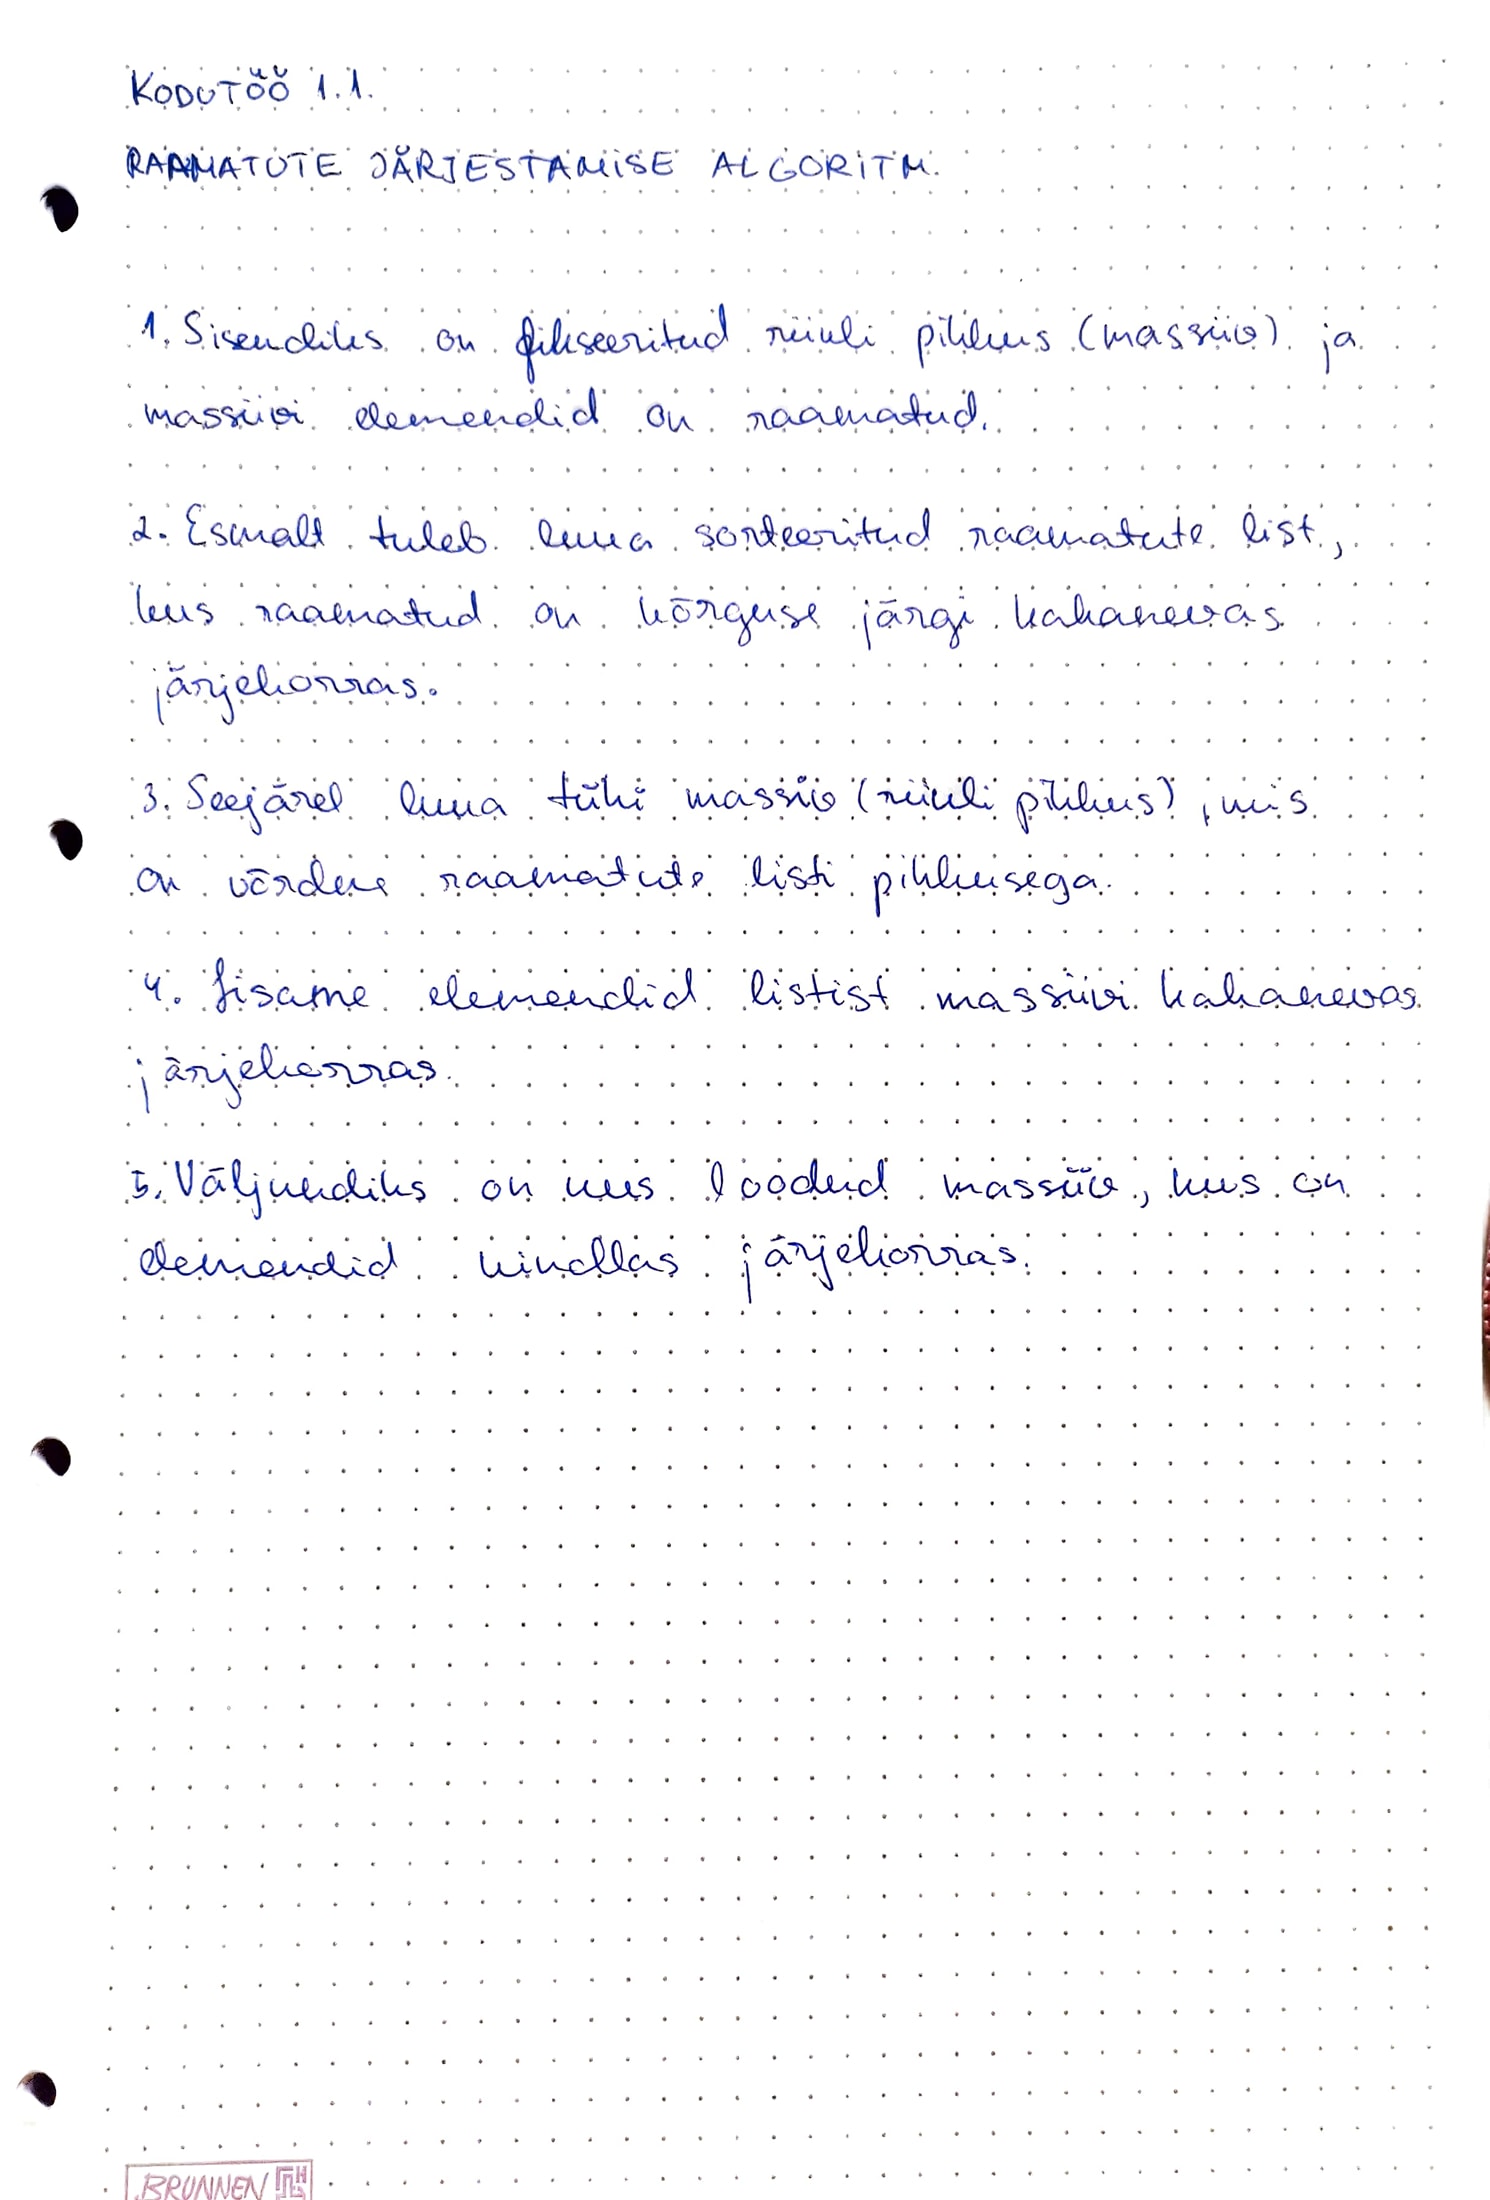 KODUTÖÖ 1.1.
RAAMATUTE JÄRJESTAMISE ALGORITM.
1. Sisendiks on fikseeritud riiuli pikkus (massiiv) ja
massiivi elemendid on raamatud.
2. Esmalt tuleb luua sorteeritud raamatute list,
kus raamatud on kõrguse järgi kahanevas
järjekorras.
3. Seejärel luua tühi massiiv (riiuli pikkus), mis
on võrdne raamatute listi pikkusega.
4. Lisame elemendid listist massiivi kahanevas
järjekorras.
5. Väljundiks on uus loodud massiiv, kus on
elemendid kindlas järjekorras.
BRUNNEN